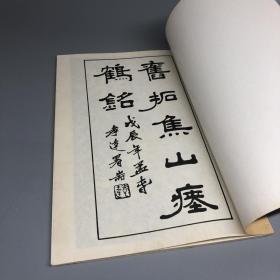 舊拓焦山瘞
鶴銘
戊辰年孟春
孝達署耑